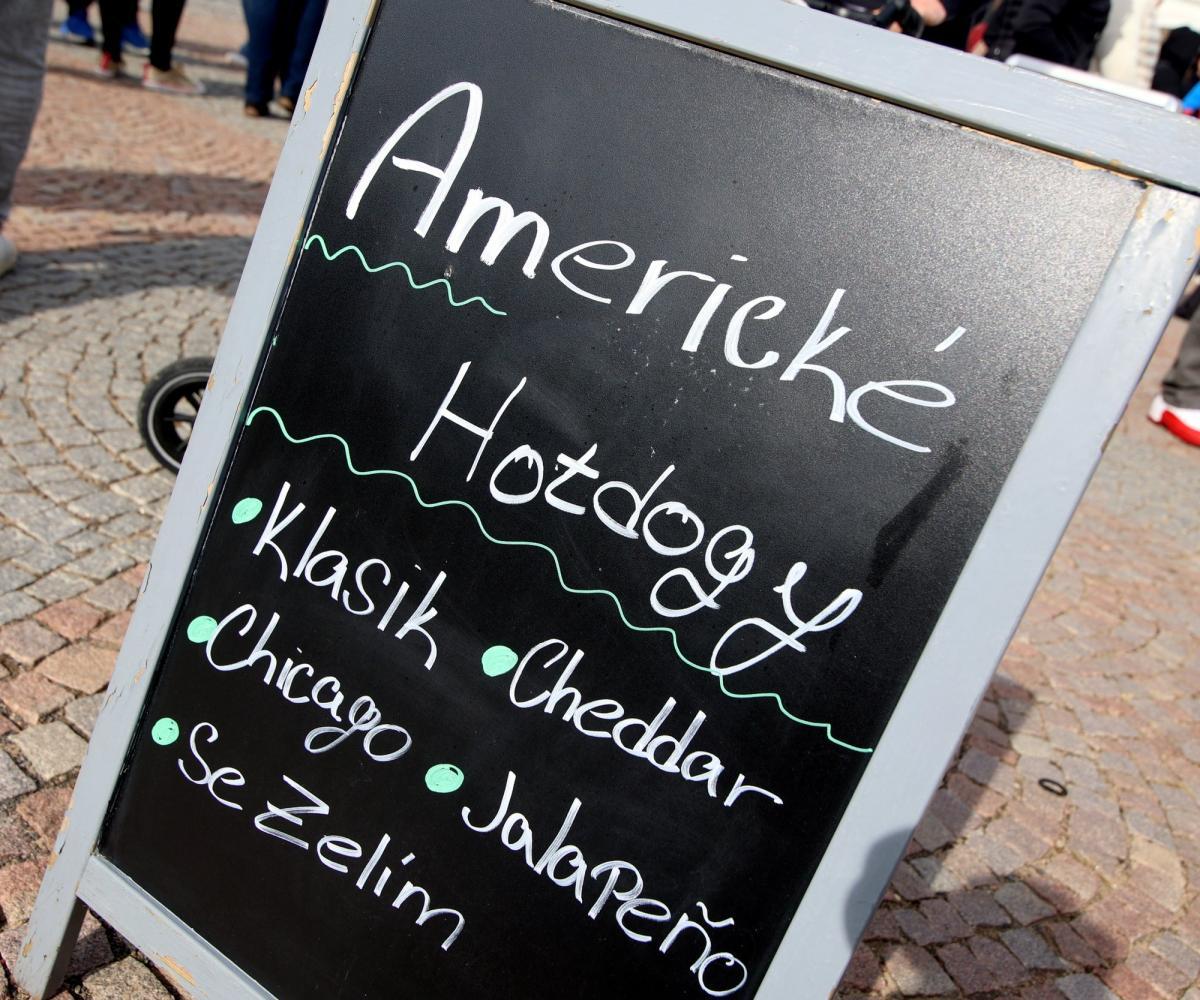 Americké
Hotdogy
Klasik
Cheddar
Chicago
Jalapeňo
Se Zelím